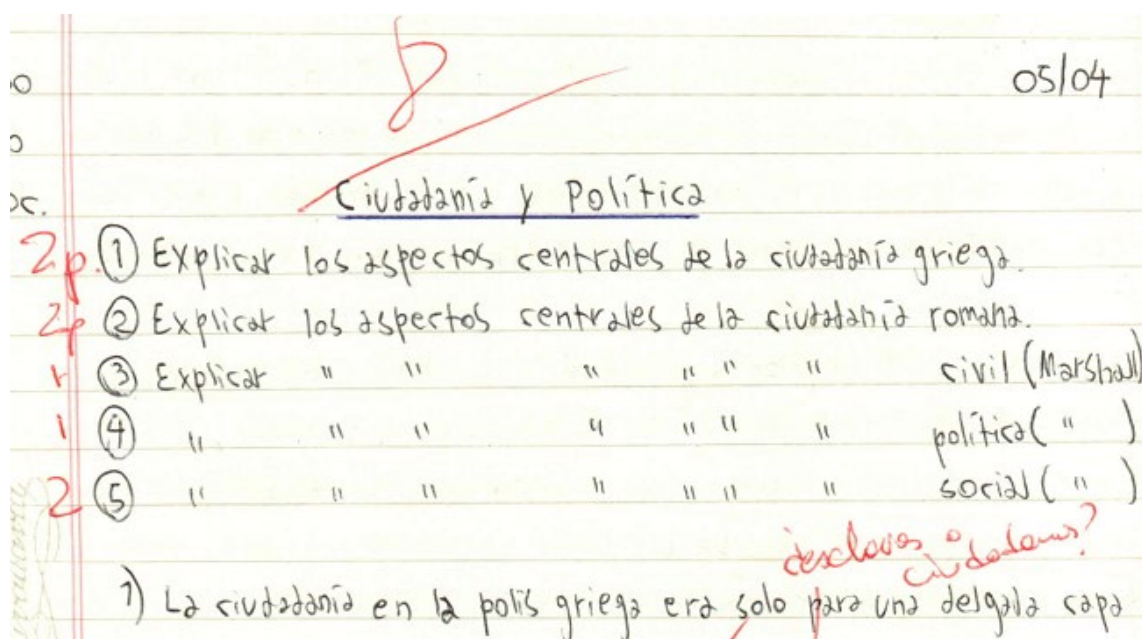 8
05/04
Ciudadanía y Política
2p. ① Explicar los aspectos centrales de la ciudadanía griega.
2p ② Explicar los aspectos centrales de la ciudadanía romana.
1 ③ Explicar " " " " " " civil (Marshall)
1 ④ " " " " " " " política ( " )
2 ⑤ " " " " " " " social ( " )
¿esclavos o
ciudadanos?
1) La ciudadanía en la polis griega era solo para una delgada capa